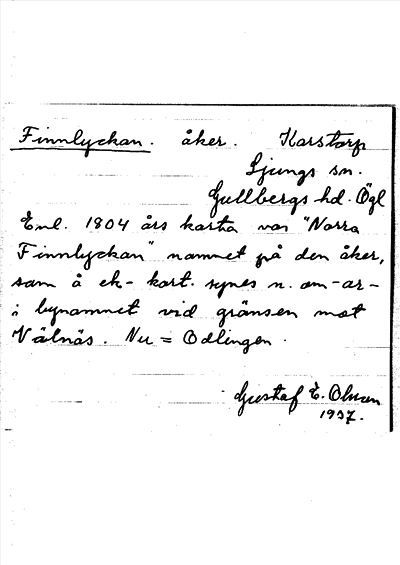 Finnlyckan. åker. Karstorp
Ljungs sn.
Gullbergs hd. Ögl
Enl. 1804 års karta var "Norra
Finnlyckan" namnet på den åker,
som å ek-kart. synes n. om -ar-
i bynamnet vid gränsen mot
Välnäs. Nu = Odlingen.
Gustaf E. Olsson
1937.